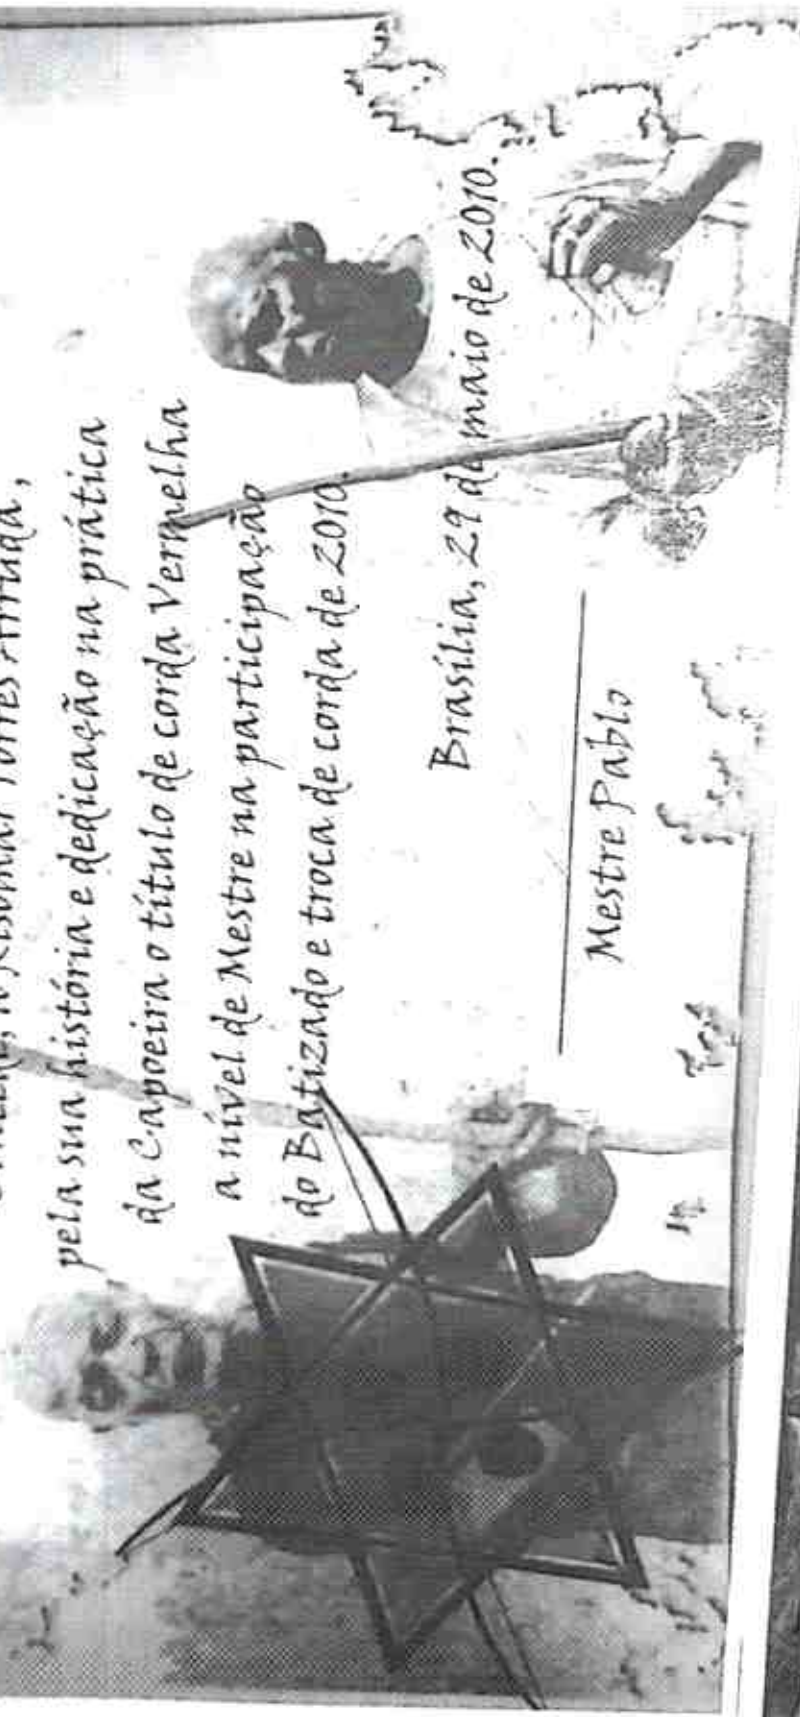 Torres Arruda,
pela sua história e dedicação na prática
da Capoeira o título de corda Vermelha
a nível de Mestre na participação
do Batizado e troca de corda de 2010.
Brasília, 29 de maio de 2010.
Mestre Pablo